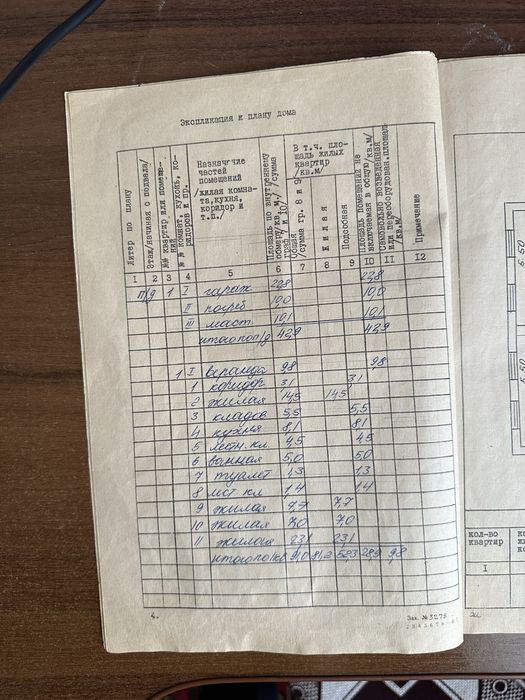 Экспликация к плану дома
Литер по плану
Этаж/начиная с подвала/
№№ квартир или помещений
№№ комнат, кухонь, коридоров и пр.
Назначение частей помещений /жилая комната, кухня, коридор и т.п./
Площадь по внутреннему обмеру/кв.м/ /сумма граф 7 и 10/
В т.ч. площадь жилых квартир /кв.м/
Общая /сумма гр. 8 и 9
Жилая
Подсобная
Площадь помещений не включаемая в общую/кв.м/
Самовольно возведенная или переоборудован.площадь кв.м/
Примечание
I 2 3 4 5 6 7 8 9 10 11 12
п/д 1 I гараж 22,8 22,8
II погреб 10,0 10,0
III маст. 10,1 10,1
итого по п/д 42,9 42,9
1 I веранда 9,8 9,8
1 коридор 3,1 3,1
2 жилая 14,5 14,5
3 кладов 5,5 5,5
4 кухня 8,1 8,1
5 лестн.кл. 4,5 4,5
6 ванная 5,0 5,0
7 туалет 1,3 1,3
8 лест кл 1,4 1,4
9 жилая 7,7 7,7
10 жилая 7,0 7,0
11 жилая 23,1 23,1
итого по 1 кв 91,0 81,2 52,3 28,9 9,8
4.
Зак. №3278
5.50
5.50
кол-во квартир
I